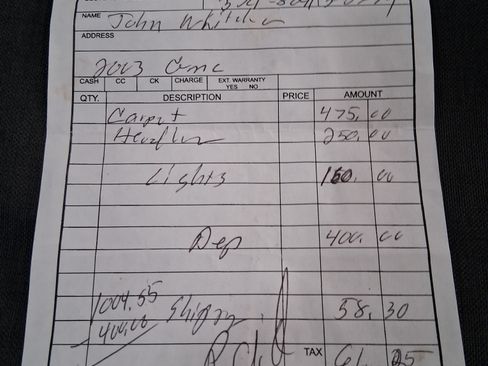 NAME John
ADDRESS
2003 Gmc
CASH CC CK CHARGE EXT. WARRANTY
YES NO
QTY. DESCRIPTION PRICE AMOUNT
Carpet 475.00
250.00
Lights 160.00
Dep 400.00
1004.55
400.00 58.30
TAX 61.25